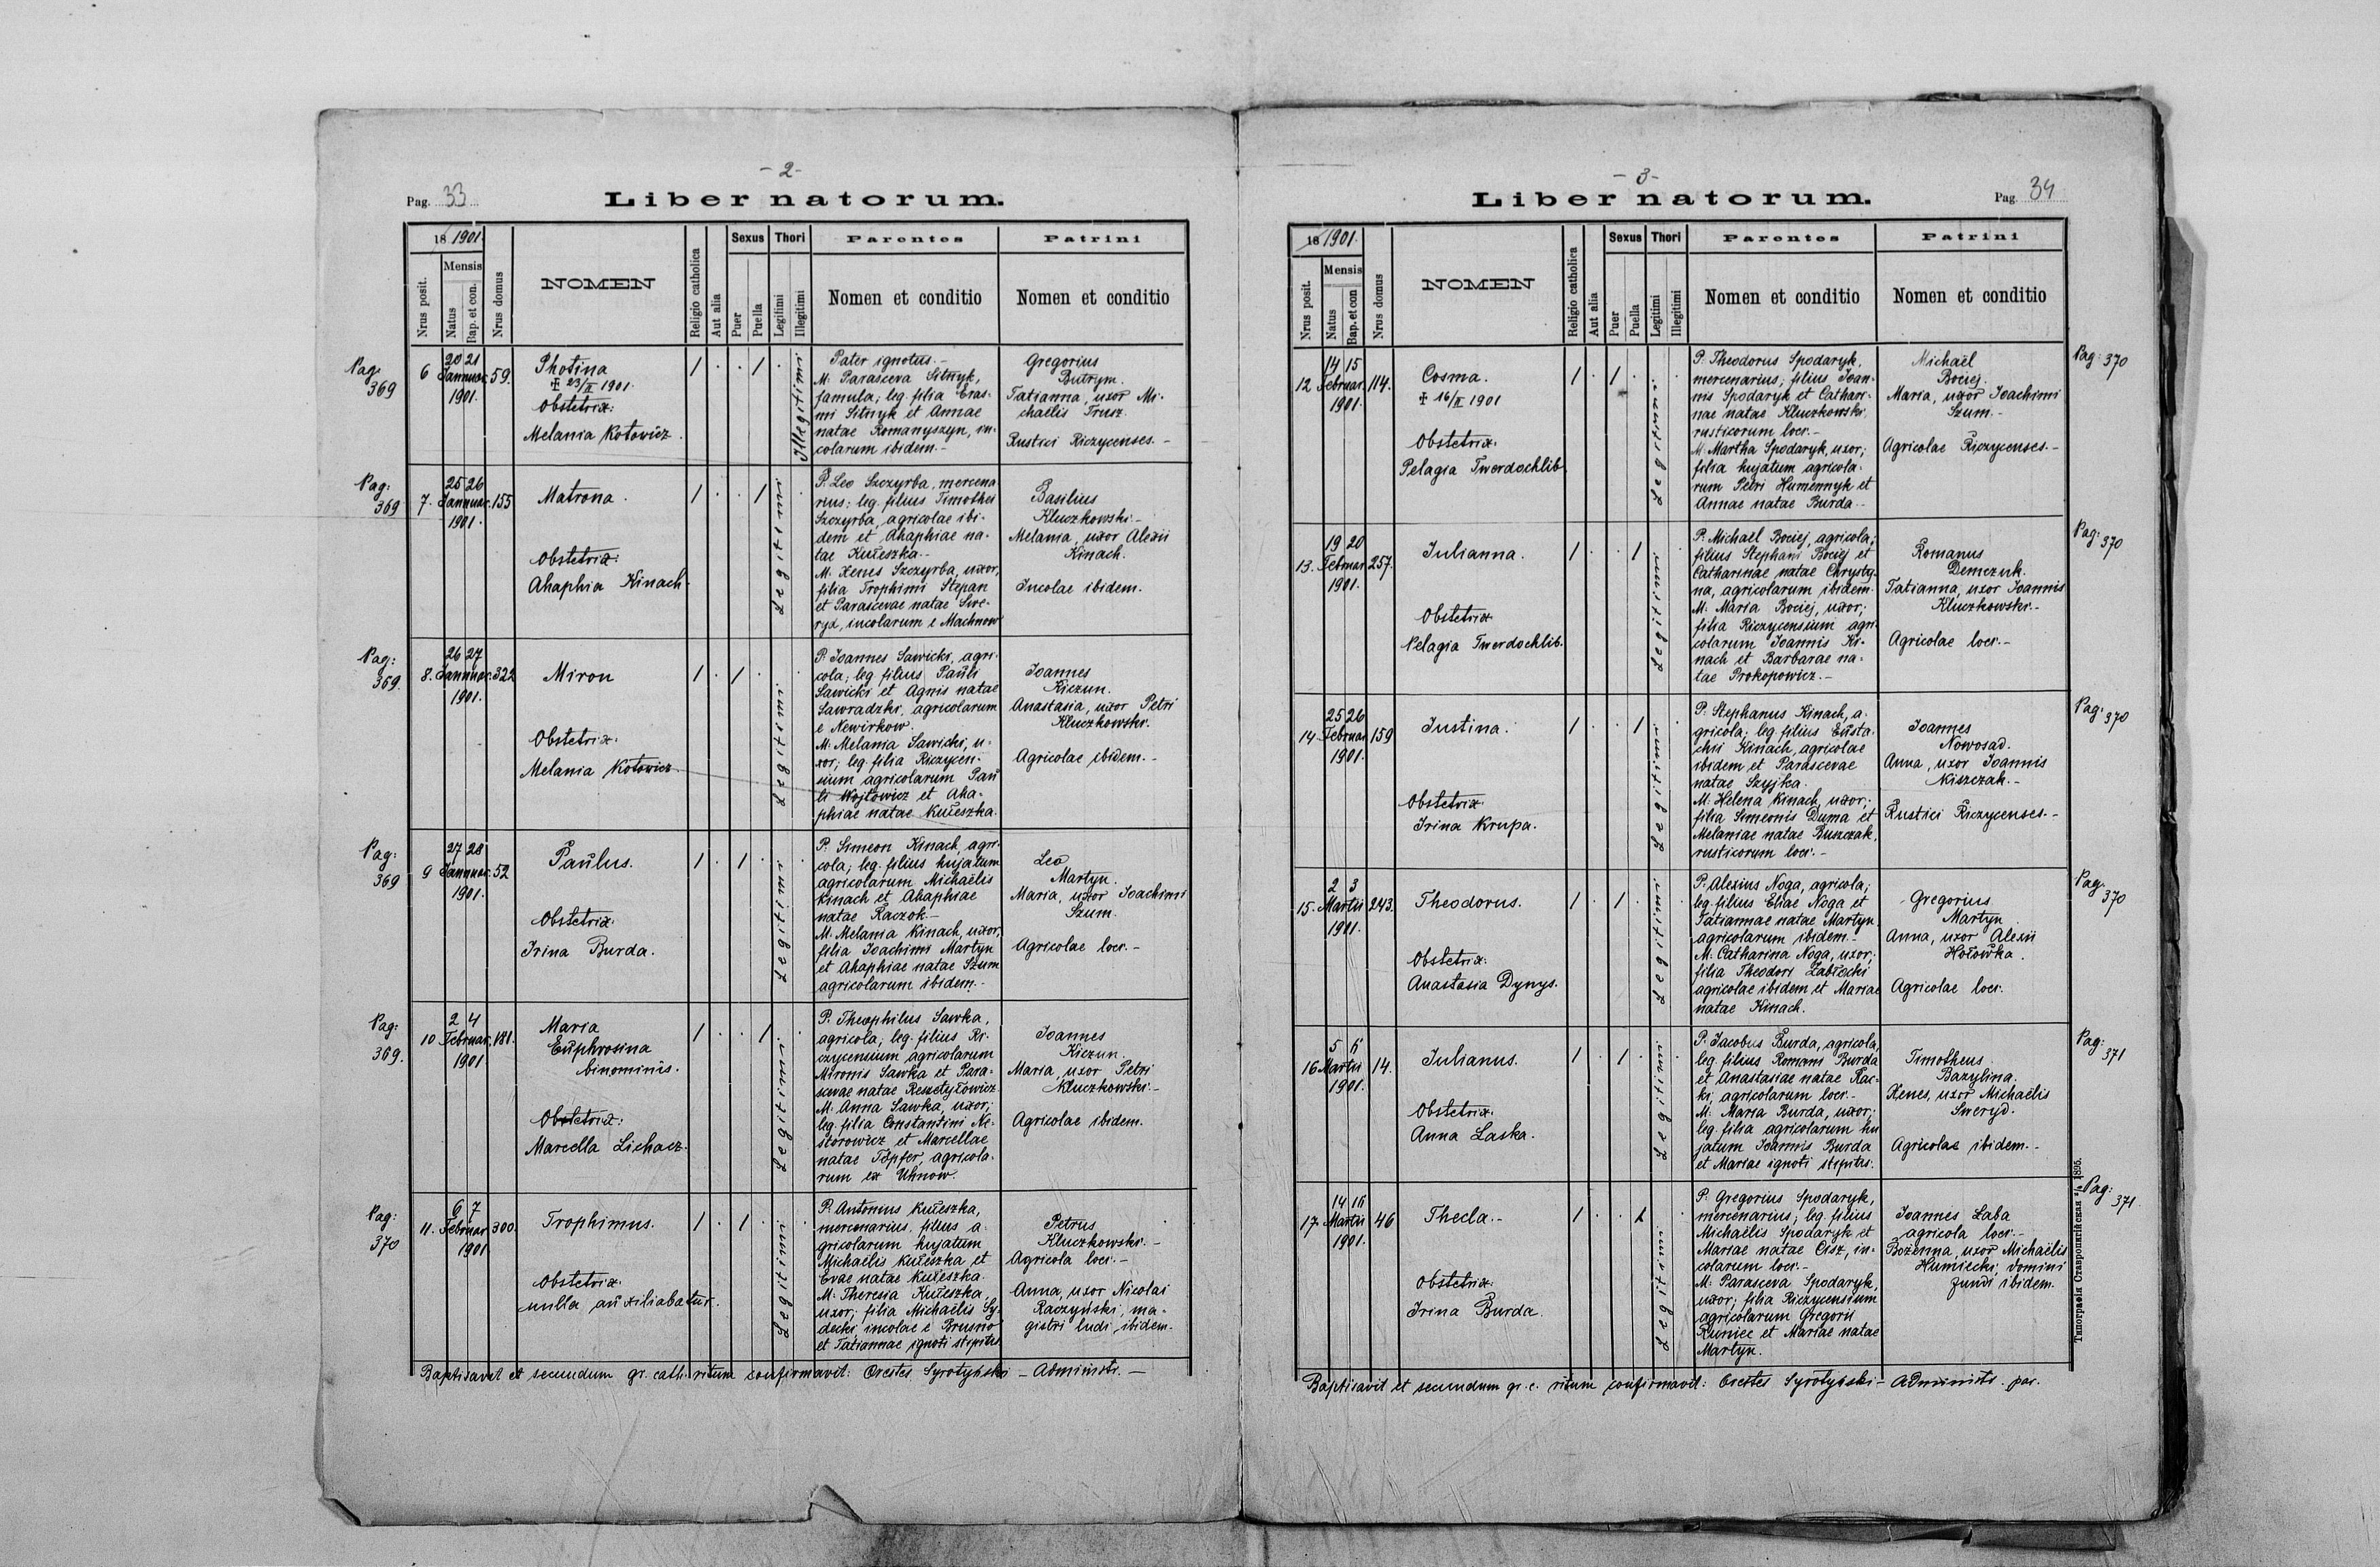 - 2 -
Pag. 33
Liber natorum.
18 1901.
Nrus posit.
Mensis
Natus
Bap. et con.
Nrus domus
NOMEN
Religio catholica
Aut alia
Sexus
Puer
Puella
Thori
Legitimi
Illegitimi
Parentes
Nomen et conditio
Patrini
Nomen et conditio
Pag:
369
6
20 21
Januar.
1901.
59.
Photina
‡ 23/II 1901.
Obstetrix:
Melania Kotowicz.
1 . . 1 .
Illegitimi
Pater ignotus.-
M: Parasceva Sitnyk,
famula; leg. filia Eras-
mi Sitnyk et Annae
natae Romanyszyn, in-
colarum ibidem.-
Gregorius
Butrym.
Tatianna, uxor Mi-
chaëlis Trusz.
Rustici Riczycenses.-
Pag:
369
7.
25 26
Januar.
1901.
155
Matrona.
Obstetrix:
Ahaphia Kinach.
1 . . 1 .
Legitimi
P: Leo Szczyrba, mercena
rius; leg. filius Timothei
Szczyrba, agricolae ibi-
dem et Ahaphiae na-
tae Kułeszka.-
M: Xenes Szczyrba, uxor,
filia Trophimi Stepan
et Parascevae natae Swe-
ryd, incolarum e Machnow
Basilius
Kluczkowski.-
Melania, uxor Alexii
Kinach.
Incolae ibidem.
Pag:
369.
8.
26 27
Januar.
1901.
322
Miron
Obstetrix:
Melania Kotowicz.
1 . 1 . .
Legitimi
P: Joannes Sawicki, agri-
cola; leg. filius Pauli
Sawicki et Agnis natae
Sawradzki, agricolarum
e Newirkow.
M: Melania Sawicki, u-
xor; leg. filia Riczycen-
sium agricolarum Pau
li Wojtowicz et Aha-
phiae natae Kułeszka.
Joannes
Kiczun.
Anastasia, uxor Petri
Kluczkowski.
Agricolae ibidem.-
Pag:
369
9
27 28
Januar.
1901.
52
Paulus.
Obstetrix:
Irina Burda.
1 . 1 . .
Legitimi
P: Simeon Kinach, agri-
cola; leg. filius hujatum
agricolarum Michaëlis
Kinach et Ahaphiae
natae Raczok.-
M: Melania Kinach, uxor,
filia Joachimi Martyn
et Ahaphiae natae Szum
agricolarum ibidem.-
Leo
Martyn.
Maria, uxor Joachimi
Szum.
Agricolae loci.-
Pag:
369.
10
2 4
Februar.
1901
181.
Maria
Euphrosina
binominis.
Obstetrix:
Marcella Lichacz.
1 . . 1 .
Legitimi
P: Theophilus Sawka,
agricola; leg. filius Ri-
czycensium agricolarum
Mironis Sawka et Para-
scevae natae Reszetyłowicz.
M: Anna Sawka, uxor;
leg. filia Constantini Ne-
storowicz et Marcellae
natae Töpfer, agricola-
rum ex Uhnow.
Joannes
Kiczun.
Maria, uxor Petri
Kluczkowski.-
Agricolae ibidem.
Pag:
370
11.
6 7
Februar.
1901
300.
Trophimus.
Obstetrix:
nulla auxiliabatur.
1 . 1 . .
Legitimi
P: Antonius Kułeszka,
mercenarius, filius a-
gricolarum hujatum
Michaëlis Kułeszka et
Evae natae Kułeszka.
M: Theresia Kułeszka,
uxor; filia Michaëlis Sy-
decki incolae e Brusno
et Tatiannae ignoti stipitis
Petrus
Kluczkowski.-
Agricola loci.-
Anna, uxor Nicolai
Raczyński, ma-
gistri ludi ibidem.
Baptisavit et secundum gr. cath. ritum confirmavit: Orestes Syrotyński - Administr. -
- 3 -
Liber natorum.
Pag. 34
18 1901.
Nrus posit.
Mensis
Natus
Bap. et con
Nrus domus
NOMEN
Religio catholica
Aut alia
Sexus
Puer
Puella
Thori
Legitimi
Illegitimi
Parentes
Nomen et conditio
Patrini
Nomen et conditio
12
14 15
Februar.
1901.
114.
Cosma.
‡ 16/II 1901
Obstetrix:
Pelagia Twerdochlib.
1 . 1 . .
Legitimi
P: Theodorus Spodaryk,
mercenarius; filius Joan-
nis Spodaryk et Cathari-
nae natae Kluczkowski,
rusticorum loci.-
M: Martha Spodaryk, uxor;
filia hujatum agricola-
rum Petri Humennyk et
Annae natae Burda.-
Michaël
Bociej.
Maria, uxor Joachimi
Szum.-
Agricolae Riczycenses.-
Pag: 370
13.
19 20
Februar
1901.
257.
Julianna.
Obstetrix
Pelagia Twerdochlib.
1 . . 1 .
Legitimi
P: Michaël Bociej, agricola;
filius Stephani Bociej et
Catharinae natae Chrysty-
na, agricolarum ibidem.
M: Maria Bociej, uxor;
filia Riczycensium agri-
colarum Joannis Ki-
nach et Barbarae na-
tae Prokopowicz.-
Romanus
Demczuk.
Tatianna, uxor Joannis
Kluczkowski.-
Agricolae loci.-
Pag: 370
14.
25 26
Februar
1901.
159
Justina.
Obstetrix:
Irina Krupa.
1 . . 1 .
Legitimi
P: Stephanus Kinach, a-
gricola; leg. filius Eusta-
chii Kinach, agricolae
ibidem et Parascevae
natae Szyjka.
M: Helena Kinach, uxor;
filia Simeonis Duma et
Melaniae natae Ruszczak,
rusticorum loci.-
Joannes
Nowosad.
Anna, uxor Joannis
Niszczak.-
Rustici Riczycenses.-
Pag: 370
15.
2 3
Martii
1901.
243.
Theodorus.
Obstetrix:
Anastasia Dynys.
1 . 1 . .
Legitimi
P: Alexius Noga, agricola;
leg. filius Eliae Noga et
Tatiannae natae Martyn,
agricolarum ibidem.-
M: Catharina Noga, uxor;
filia Theodori Zabłocki
agricolae ibidem et Mariae
natae Kinach.
Gregorius
Martyn.
Anna, uxor Alexii
Hołowka.
Agricolae loci.
Pag: 370
16
5 6
Martii
1901.
14.
Julianus.
Obstetrix:
Anna Laska.
1 . 1 . .
Legitimi
P: Jacobus Burda, agricola,
leg. filius Romani Burda
et Anastasiae natae Rac-
ki, agricolarum loci.-
M: Maria Burda, uxor;
leg. filia agricolarum hu
jatum Joannis Burda
et Mariae ignoti stipitis.
Timotheus
Bazylina.
Xenes, uxor Michaëlis
Sweryd.
Agricolae ibidem.-
Pag: 371
17.
14 16
Martii
1901.
46
Thecla.-
Obstetrix:
Irina Burda.
1 . . 1 .
Legitimi
P: Gregorius Spodaryk,
mercenarius; leg. filius
Michaëlis Spodaryk et
Mariae natae Cisz, in-
colarum loci.-
M: Parasceva Spodaryk,
uxor; filia Riczycensium
agricolarum Gregorii
Runiec et Mariae natae
Martyn.
Joannes Laba
agricola loci.-
Bozenna, uxor Michaëlis
Humiecki, domini
fundi ibidem.
Pag: 371.
Типографія Ставропигійская 1895.
Baptisavit et secundum gr. c. ritum confirmavit: Orestes Syrotyński - Administr. par.